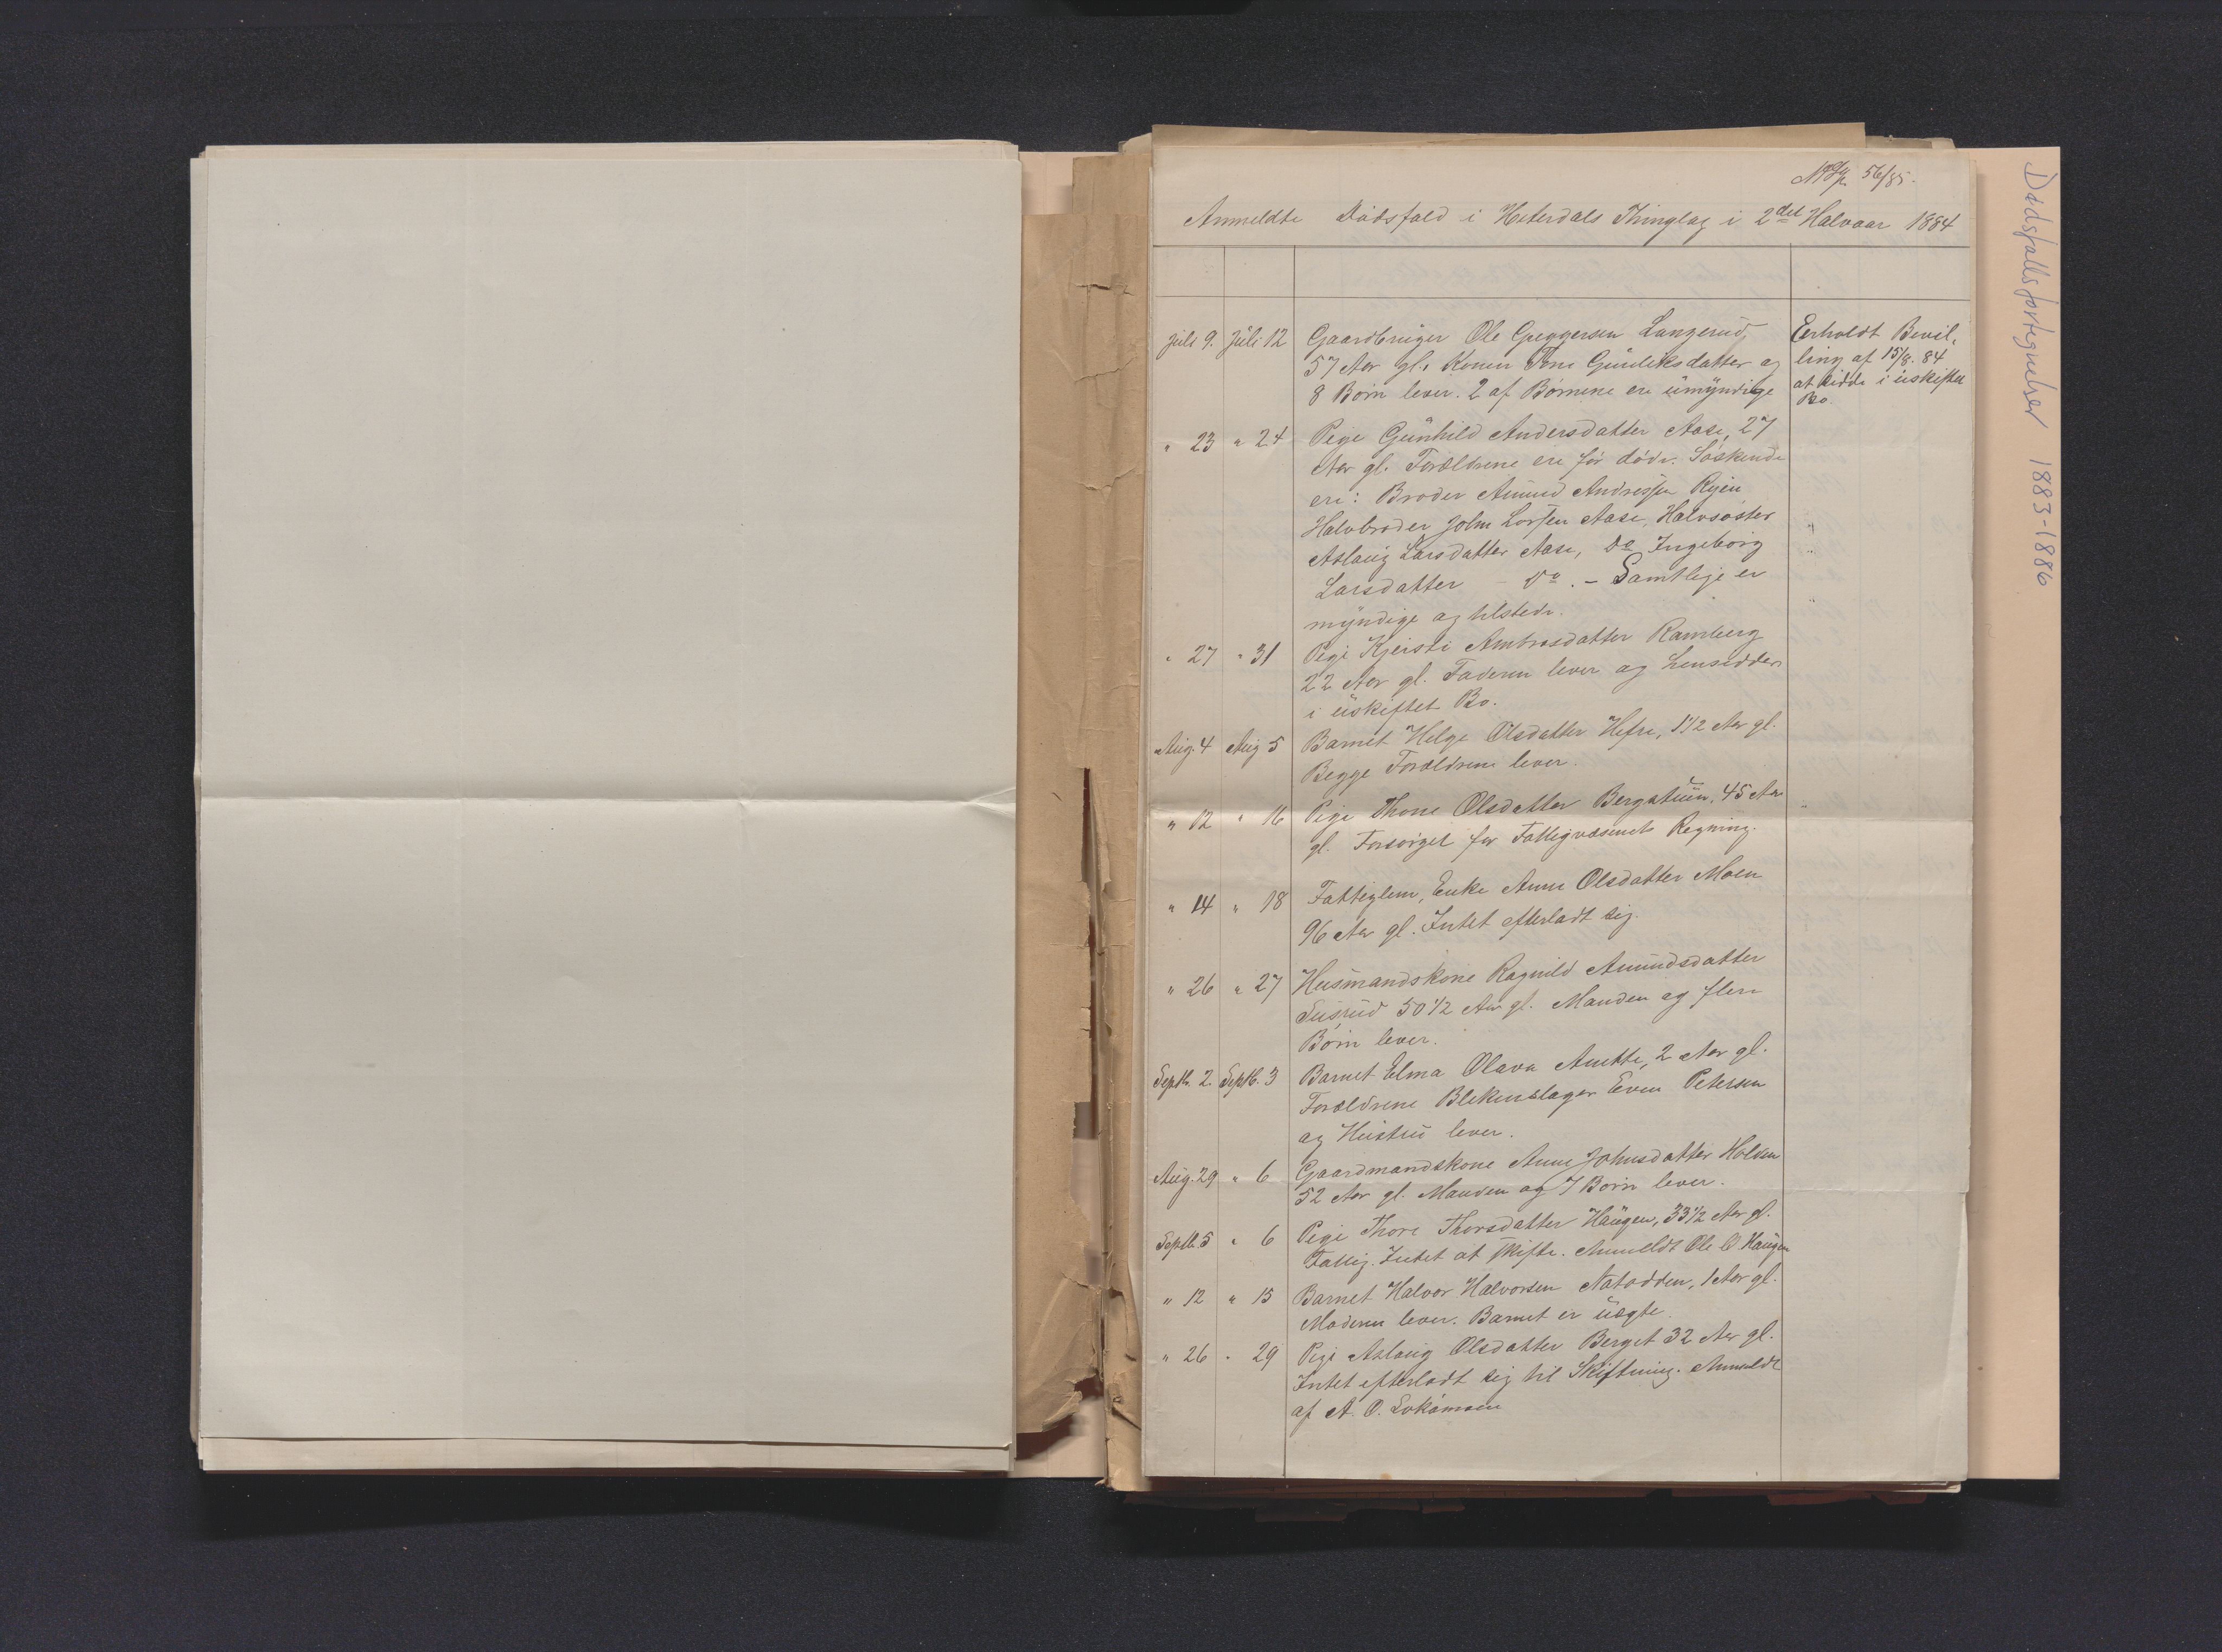 56/85.
Anmeldte Dødsfald i Hiterdals Thinglag i 2det Halvaar 1884
Juli 9. Juli 12 Gaardbruger Ole Greggersen Langerud,
57 Aar gl. Konen Tone Gunleksdatter og
8 Børn lever. 2 af Børnene ere umyndige
Erholdt Bevil-
ling af 15/8. 84
at sidde i uskiftet
Bo.
" 23 " 24 Pige Gunhild Andersdatter Aase, 27
Aar gl. Forældrene ere før døde. Søskende
ere: Broder Amund Andressen Ryen
Halvbroder John Larsen Aase, Halvsøster
Aslaug Larsdatter Aase, do Ingeborg
Larsdatter - do. - Samtlige er
myndige og tilstede.
" 27 " 31 Pige Kjersti Ambrosdatter Ramberg
22 Aar gl. Faderen lever og hensidder
i uskiftet Bo.
Aug. 4 Aug 5 Barnet Helge Olsdatter Hefre, 1 1/2 Aar gl.
Begge Forældrene lever.
" 12 " 16 Pige Thone Olsdatter Bergstuen, 45 Aar
gl. Forsørget for Fattigvæsenets Regning.
" 14 " 18 Fattiglem, Enke Anne Olsdatter Moen
96 Aar gl. Intet efterladt sig.
" 26 " 27 Husmandskone Ragnild Amundsdatter
50 1/2 Aar gl. Manden og flere
Børn lever.
Septb. 2. Septb. 3 Barnet Elma Olava Anette, 2 Aar gl.
Forældrene Blikenslager Even Petersen
og Hustru lever.
Aug. 29 " 6 Gaardmandskone Anne Johnsdatter Holden
52 Aar gl. Manden og 7 Børn lever.
Septb. 5 " 6 Pige Thore Thorsdatter Haugen, 33 1/2 Aar gl.
Fattig. Intet at skifte. Anmeldt Ole O Haugen
" 12 " 15 Barnet Halvor Halvorsen Notodden, 1 Aar gl.
Moderen lever. Barnet er uægte.
" 26 " 29 Pige Aslaug Olsdatter Berget 32 Aar gl.
Intet efterladt sig til Skiftning. Anmeldt
af A. O.
Dødsfallsfortegnelser 1883-1886